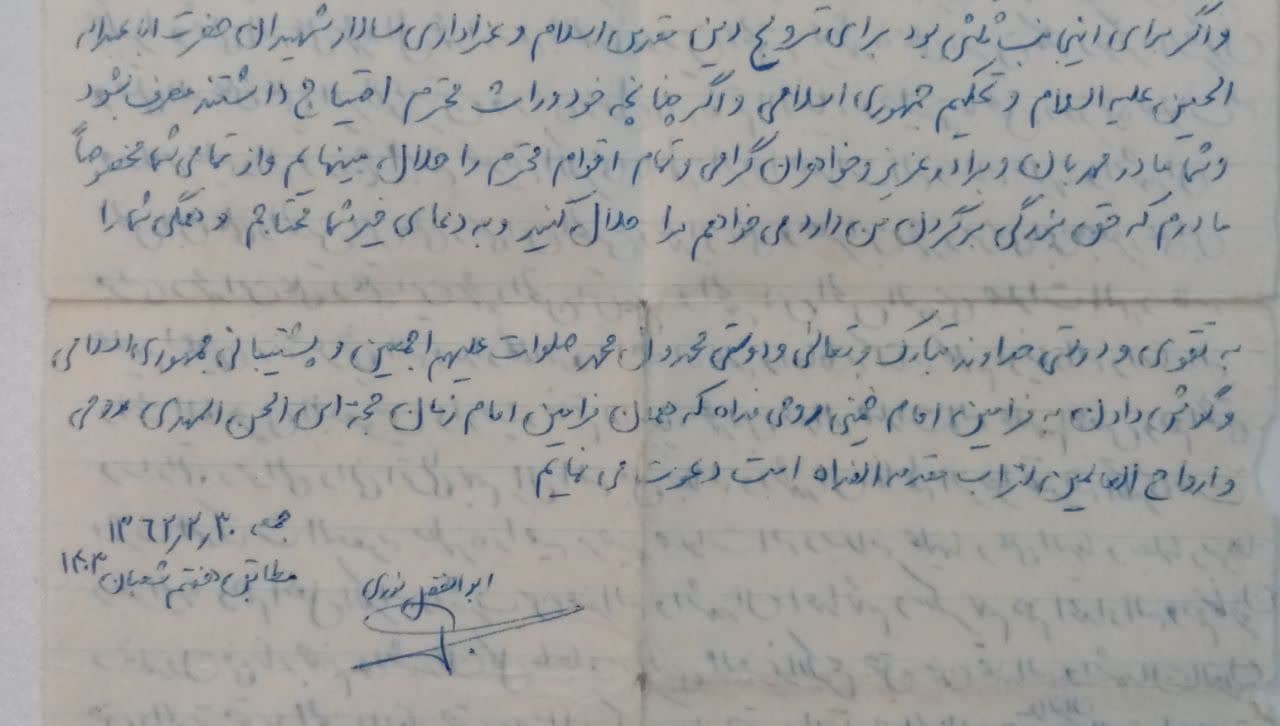 و اگر برای اینجانب ثلثی بود برای ترویج دین مقدس اسلام و عزاداری سالار شهیدان حضرت اباعبداله
الحسین علیه السلام و تحکیم جمهوری اسلامی و اگر چنانچه خود وراث محترم احتیاج داشتند مصرف بشود
و شما مادر مهربان و برادر عزیز و خواهران گرامی و تمام اقوام محترم را حلال مینمایم و از تمامی شما مخصوصاً
مادرم که حق بزرگی برگردن من دارد می خواهم مرا حلال کنید و به دعای خیر شما محتاجم و همگی شما را
به تقوی و دوستی خداوند تبارک و تعالی و دوستی محمد و آل محمد صلوات علیهم اجمعین و پشتیبانی جمهوری اسلامی
و گوش دادن به فرامین امام خمینی روحی فداه که همان فرامین امام زمان حجة ابن الحسن المهدی روحی
و ارواح العالمین لتراب مقدمه الفداه است دعوت می نمایم
جمعه ۱۳۶۲٫۲٫۳۰
مطابق هفتم شعبان ۱۴۰۳
ابوالفضل